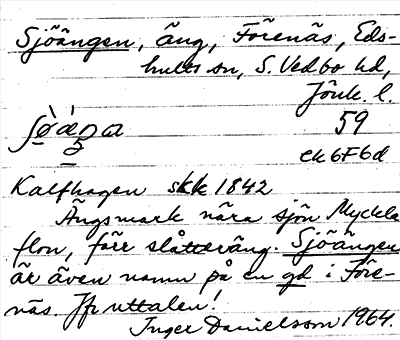 Sjöängen, äng, Förenäs, Eds-
hults sn, S. Vedbo hd,
Jönk. l.
59
ek 6F6d
Kalfhagen skk 1842
Ängsmark nära sjön Myckla
flon, förr slåtteräng. Sjöängen
är även namn på en gd i Före-
näs. Jfr uttalen!
Inger Danielsson 1964.